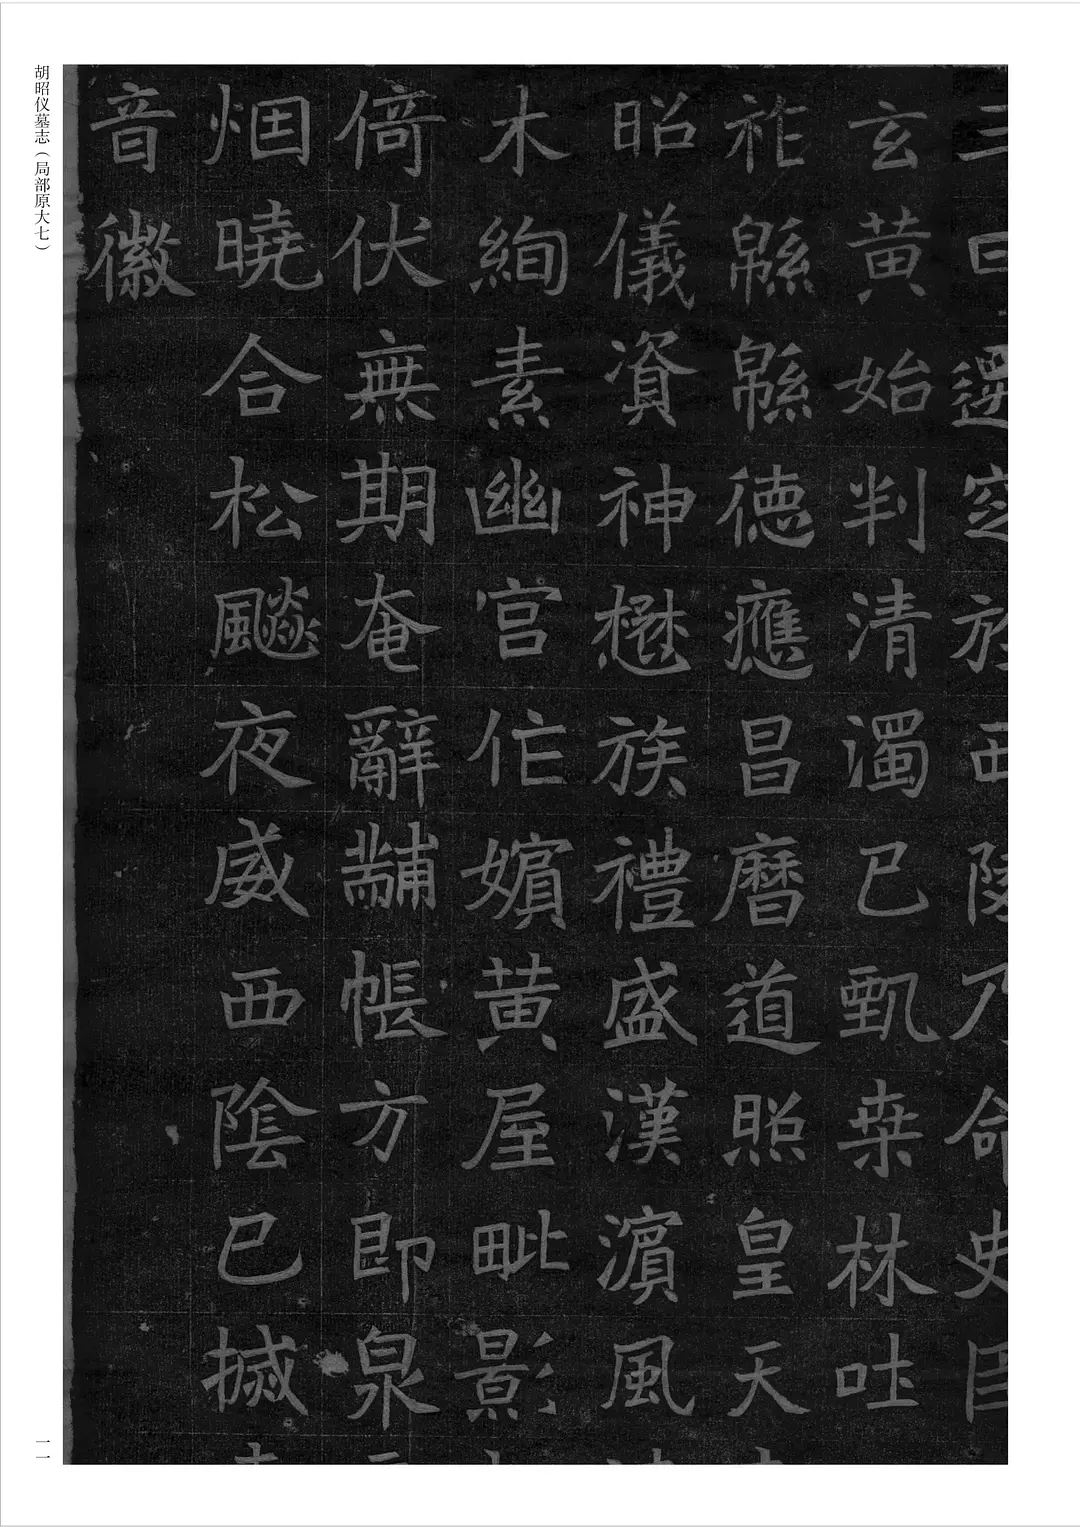 三曰遷窆於西陵乃命史臣
玄黄始判清濁已甄桒林吐
祚緜緜德應昌曆道照皇天
昭儀資神懋族禮盛漢濵風
木絢素幽宫作嬪黄屋毗影
倚伏無期奄辭黼帳方即泉
烟曉合松飈夜威西陰已搣
音徽
胡昭仪墓志（局部原大七）
一一